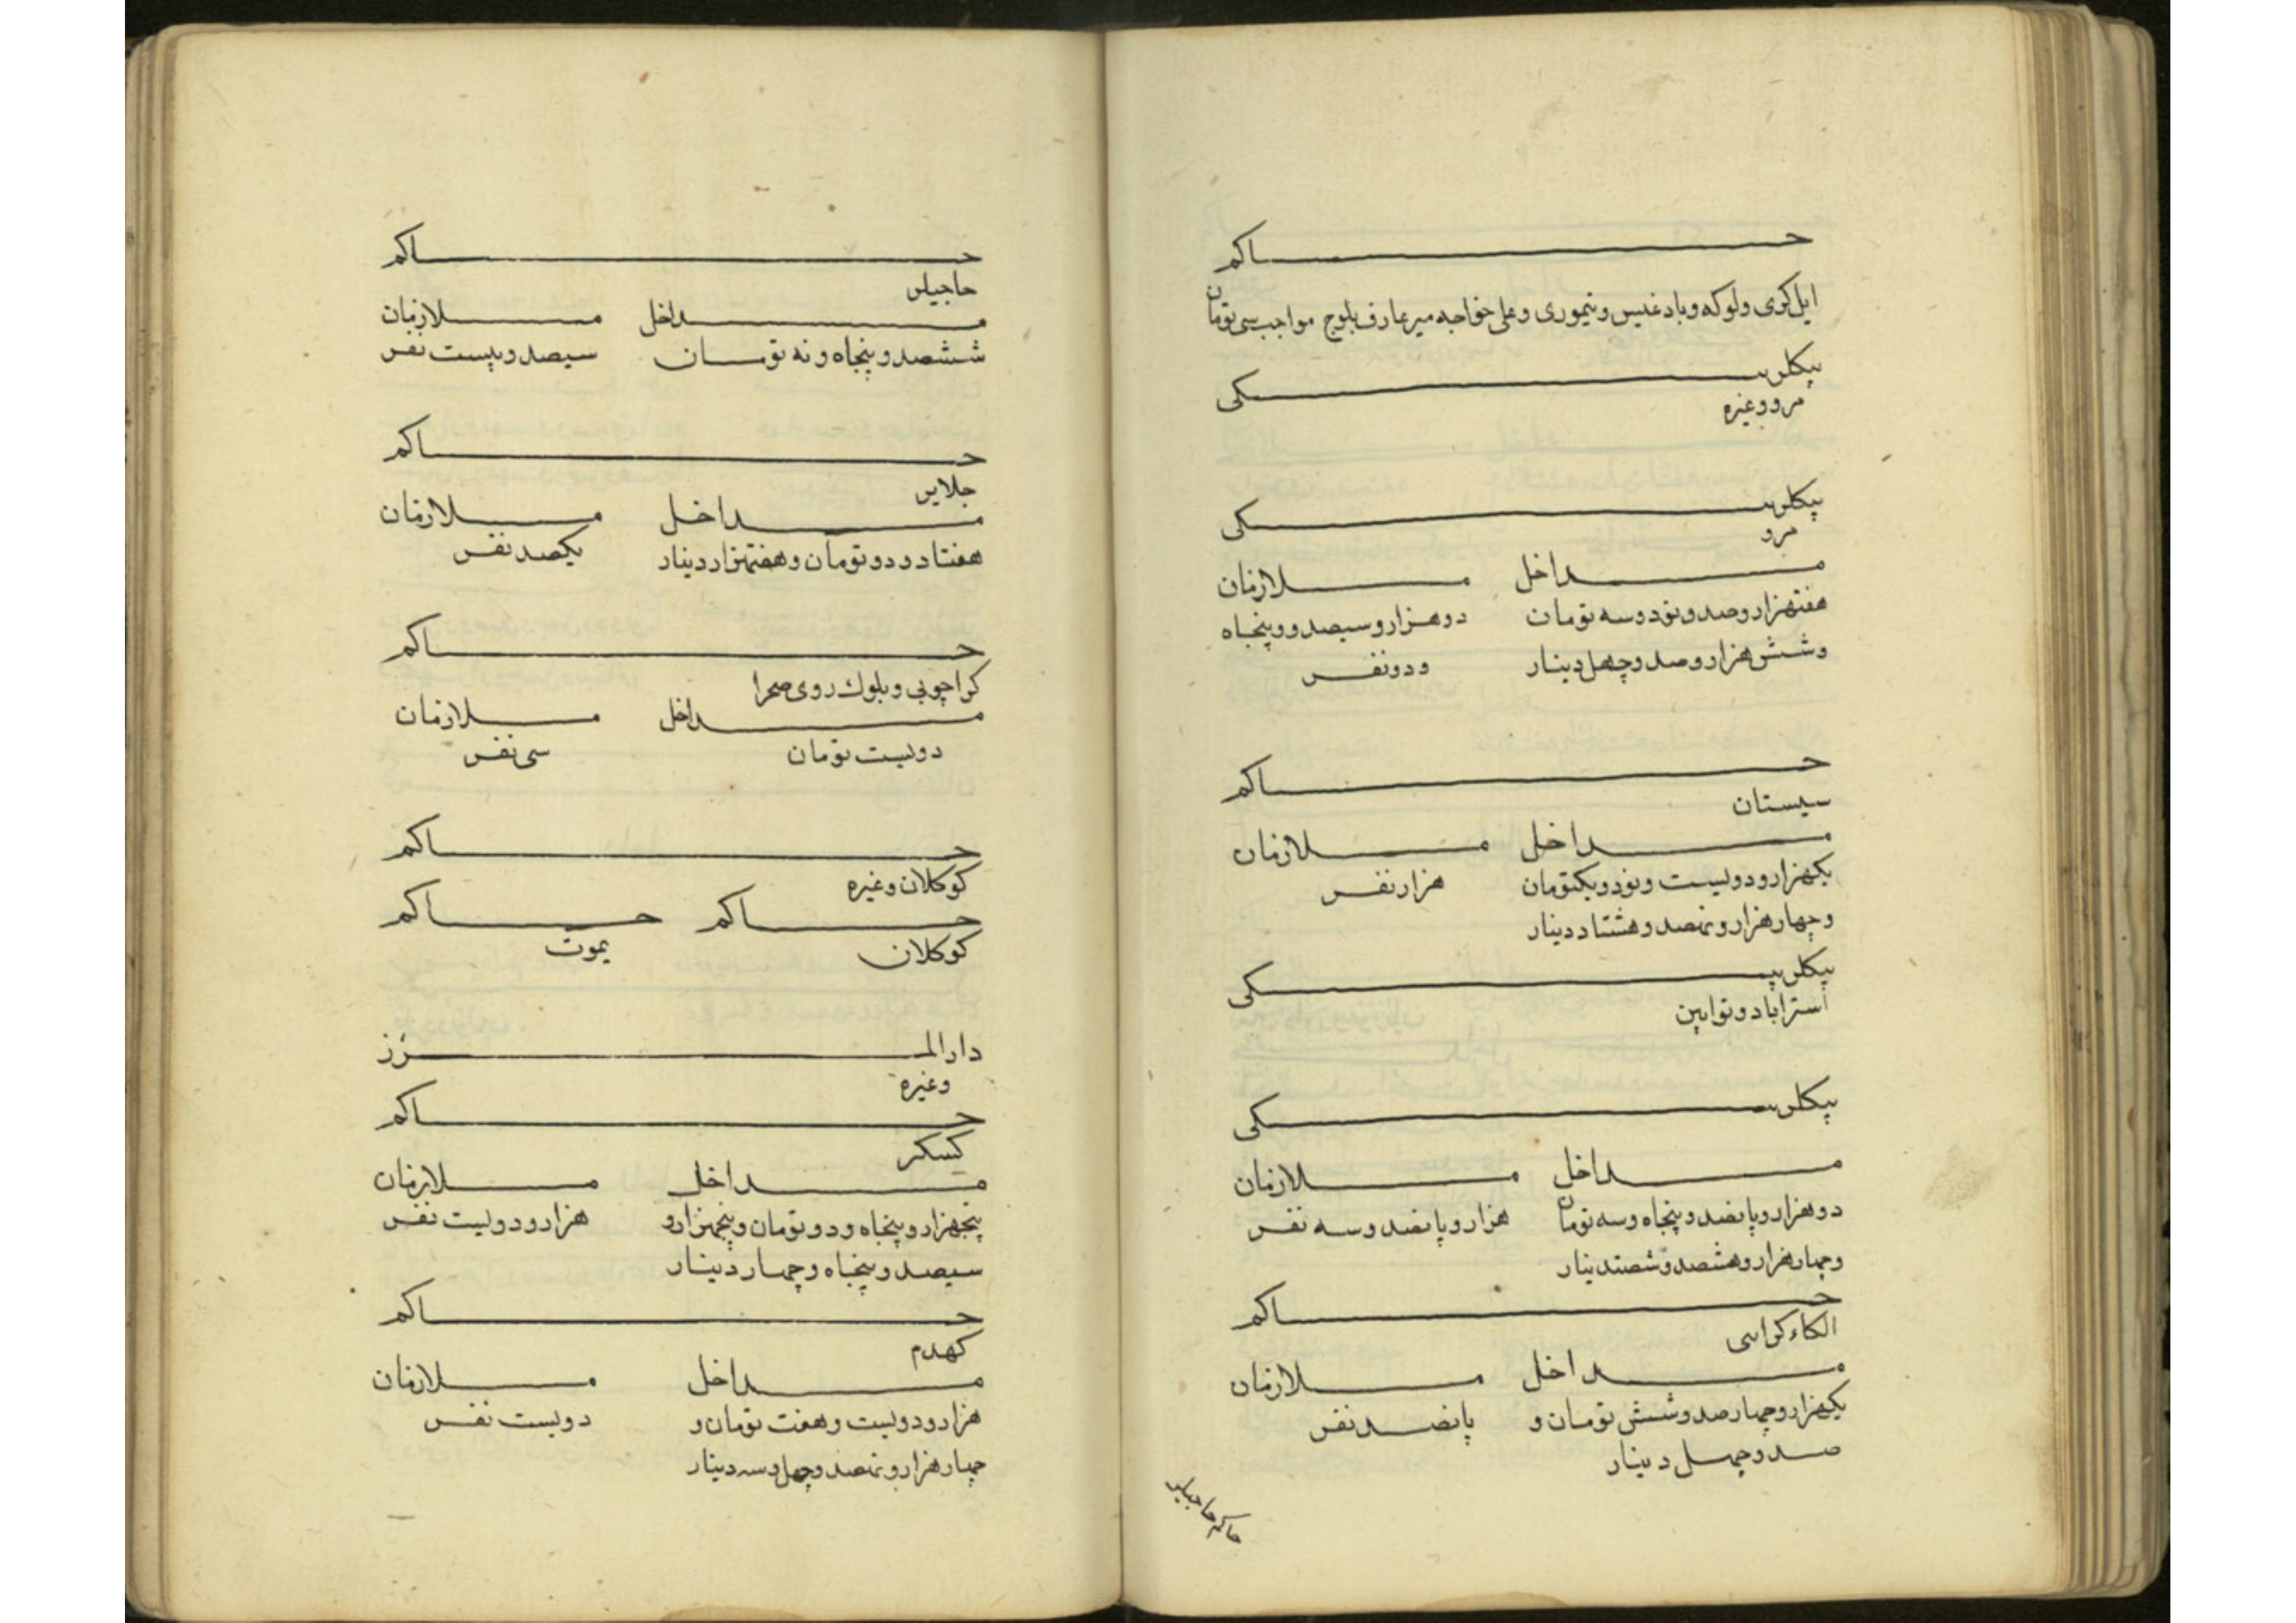 حاکم
ایل کری ولوکه وبادغیس وتیموری وعلی خواجه میرعارف بلوچ مواجب سی تومان
بیکلربیکی
مرو وغیره
بیکلربیکی
مرو
مداخل ملازمان
هفتهزار وصد ونود وسه تومان دوهزار وسیصد ووپنجاه
وشش هزار وصد وچهل دینار ودو نفر
حاکم
سیستان
مداخل ملازمان
یکهزار ودولیست ونود ویکتومان هزار نفر
وچهار هزار ونهصد وهشتاد دینار
بیکلربیکی
استراباد وتوابین
بیکلربیکی
مداخل ملازمان
دوهزار وپانصد وپنجاه وسه تومان هزار وپانصد وسه نفر
وچهار هزار وهشصد وشصتدینار
حاکم
الکاء کرایی
مداخل ملازمان
یکهزار وچهارصد وشش تومان و پانصد نفر
صد وچهل دینار
حاکم حاجیلر
حاکم
حاجیلر
مداخل ملازمان
ششصد وپنجاه ونه تومان سیصد وبیست نفر
حاکم
جلایر
مداخل ملازمان
هفتاد ودو تومان وهفتهزار دینار یکصد نفر
حاکم
کراچوبی وبلوک روی صحرا
مداخل ملازمان
دولیست تومان سی نفر
حاکم
کوکلان وغیره
حاکم حاکم
کوکلان یموت
دارالمرز
وغیره
حاکم
کسکر
مداخل ملازمان
پنجهزار وپنجاه ودو تومان وپنجهزار و هزار ودولیست نفر
سیصد وپنجاه وچهار دینار
حاکم
کهدم
مداخل ملازمان
هزار ودولیست وهفت تومان و دولیست نفر
چهار هزار ونهصد وچهل وسه دینار